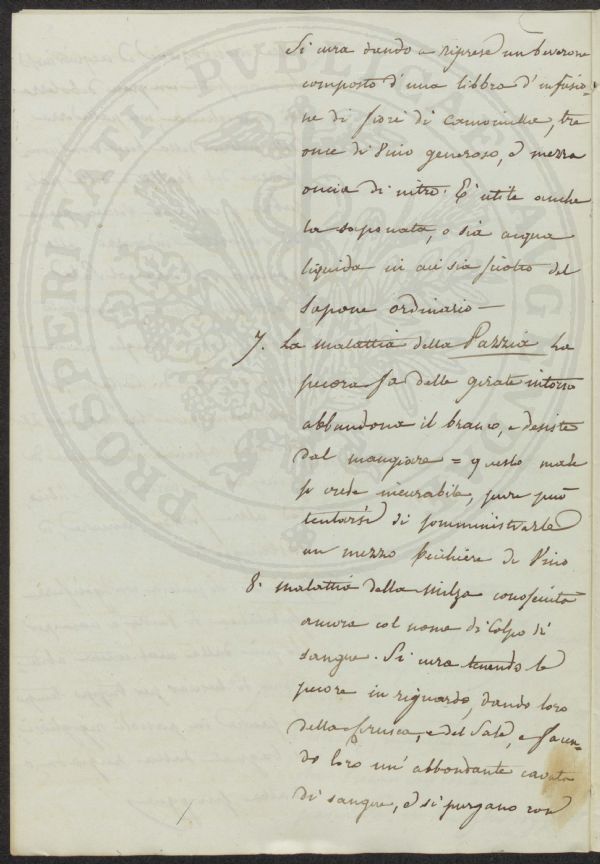 Si cura dando a riprese un beverone
composto d'una libbra d'infusio-
ne di fiori di camomilla, tre
once di Vino generoso, e mezza
oncia di nitro. È utile anche
la saponata, o sia acqua
liquida in cui sia sciolto del
Sapone ordinario —
7. La malattia della Pazzia La
pecora fa delle girate intorno
abbandona il branco, e desiste
dal mangiare = questo male
si crede incurabile, pure può
tentarsi di somministrarle
un mezzo bicchiere di Vino
8. Malattia della Milza conosciuta
ancora col nome di Colpo di
sangue. Si cura tenendo le
pecore in riguardo, dando loro
della crusca, e del Sale, e facen-
do loro un' abbondante cavata
di sangue, e si purgano con
PROSPERITATI PUBLICAE